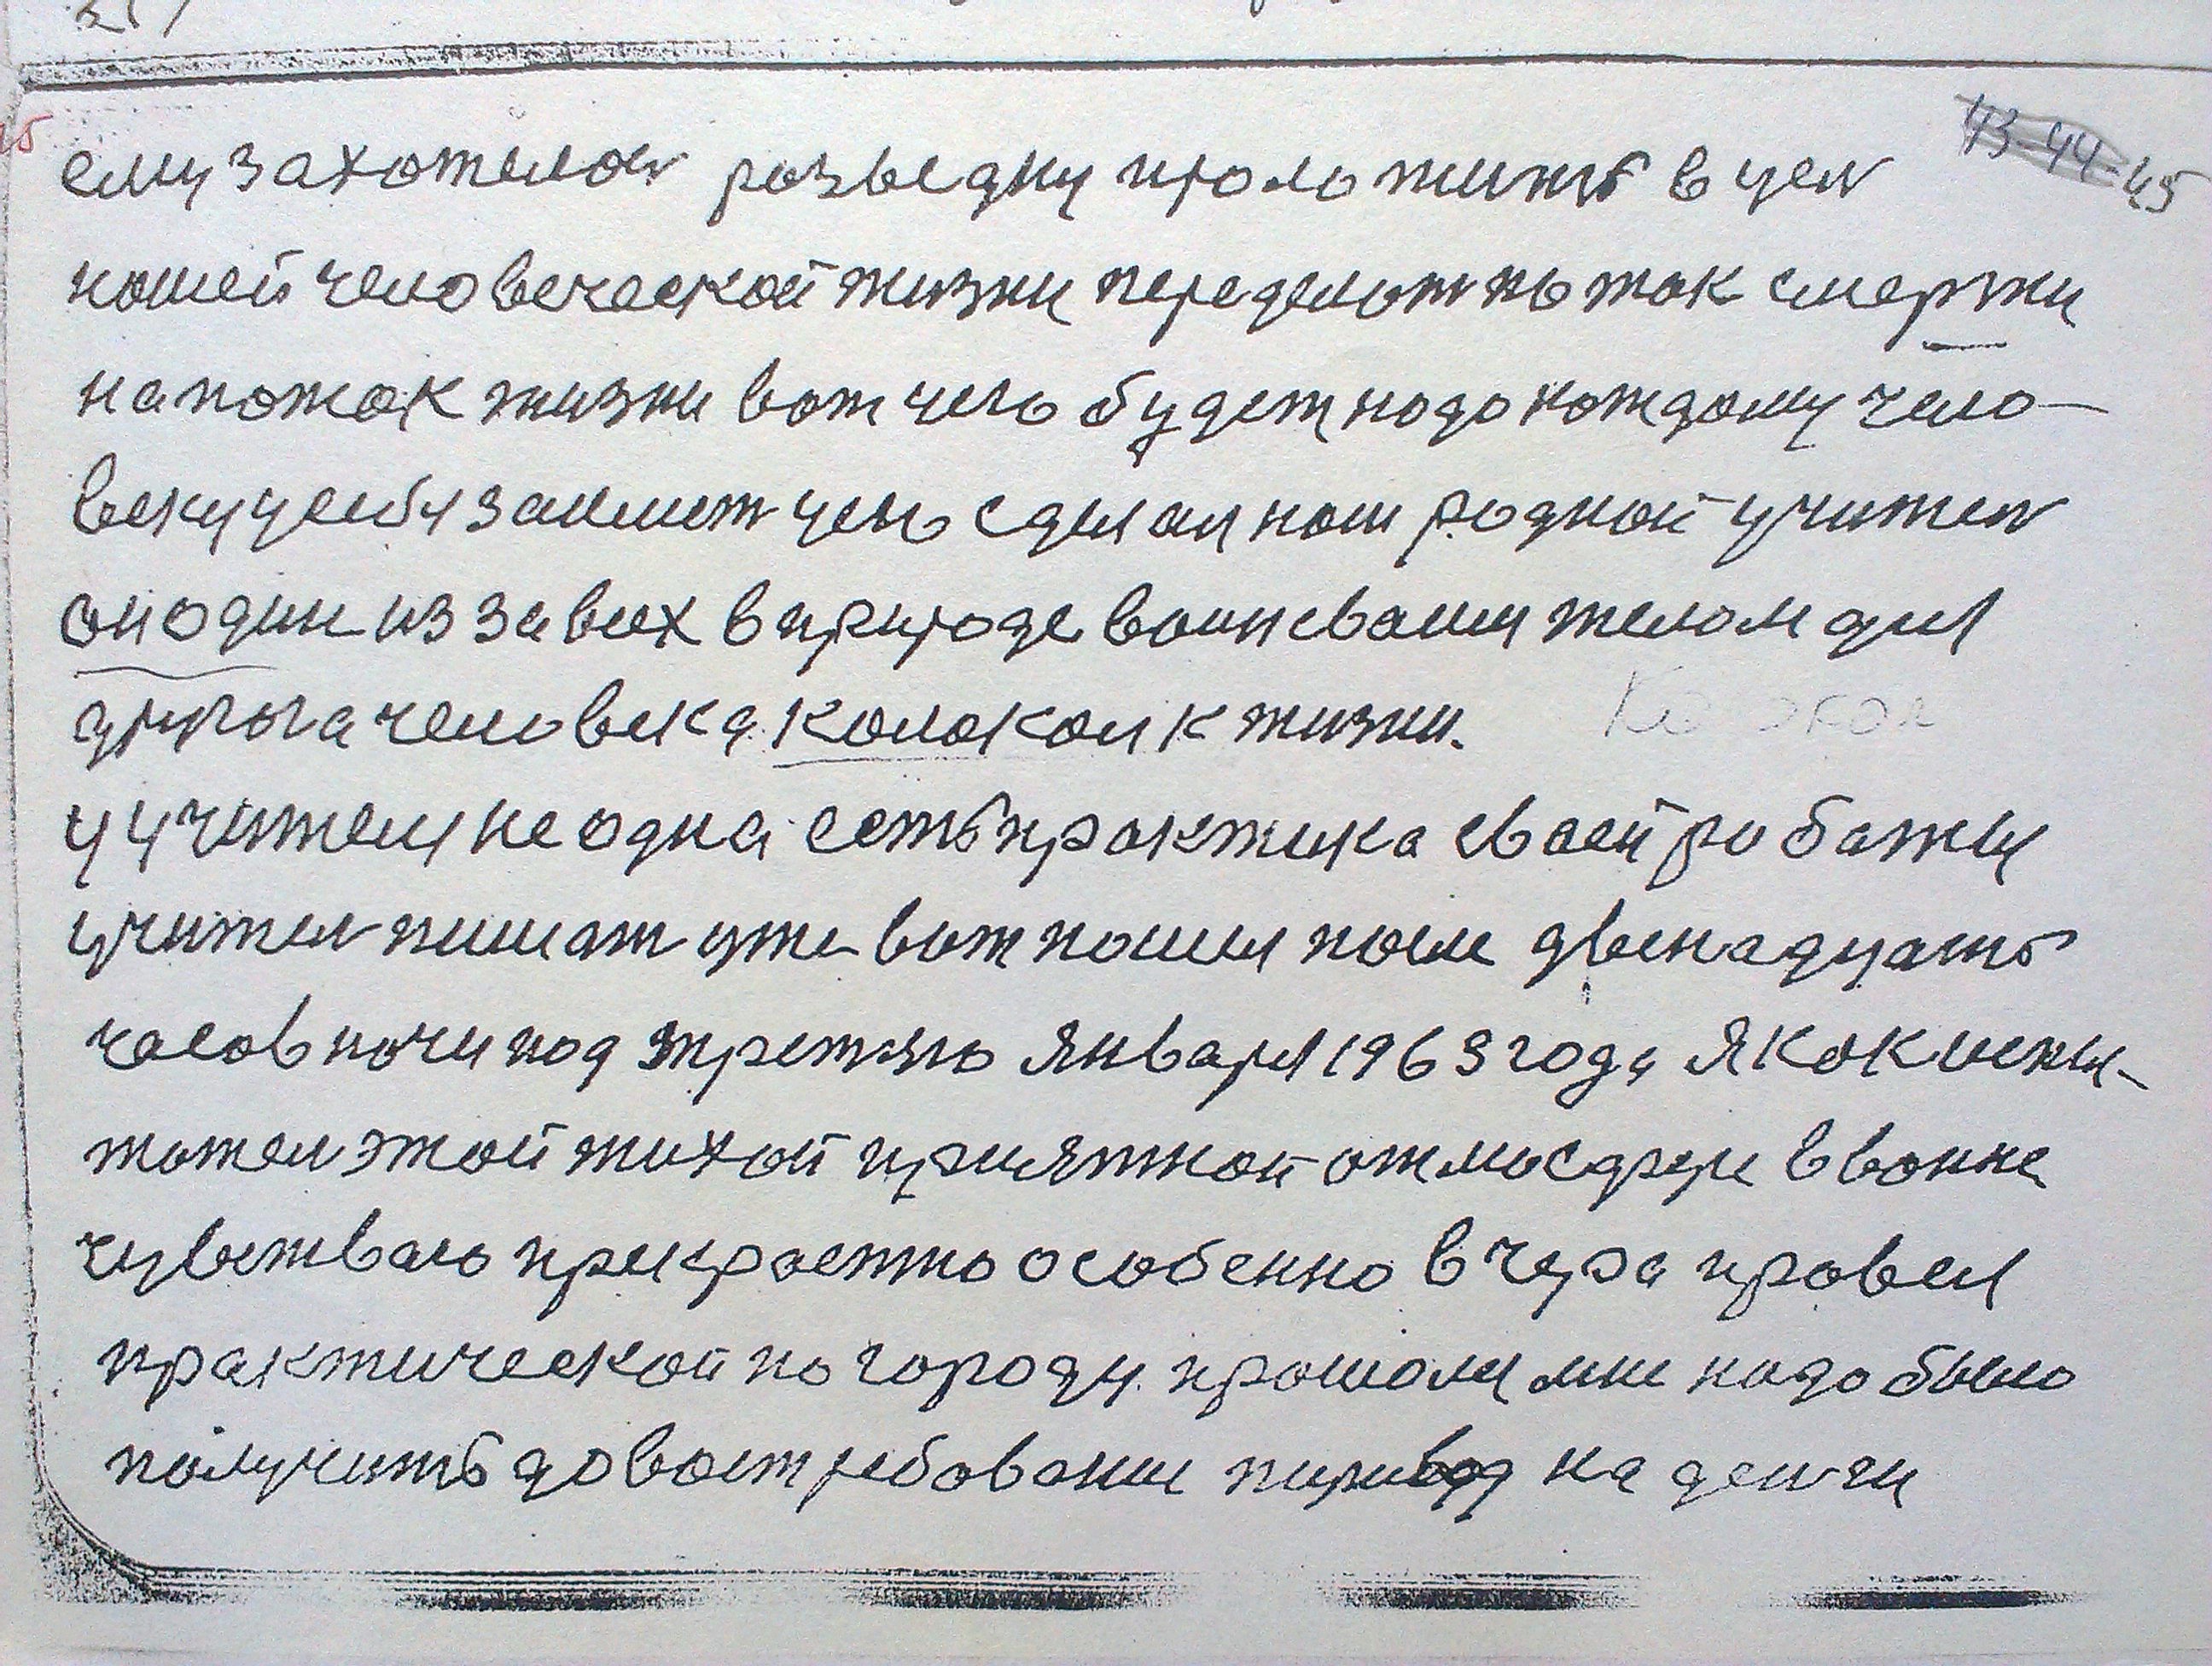 43-44-45
ему захотелось розведку проложить в цель
ношей человеческой жизни переделоть поток смерти
на поток жизни вот чего будет надо кождому чело-
веку у себя займет чего сделал нош родной учитель
он один из за всех в природе воин сваим телом для
другога человека колокол к жизни.
Колокол
у учителя не одна есть практика сваей роботы
учитель пишат уже вот пошли после двенадцать
часов ночи под третяго Января 1963 года Я как испы-
татель этой тихой приятной отмосфере в вонне
чувстваю прекрастно особенно вчера провел
практической по городу прошолся мне надо было
получить до востребование перевод на деньги